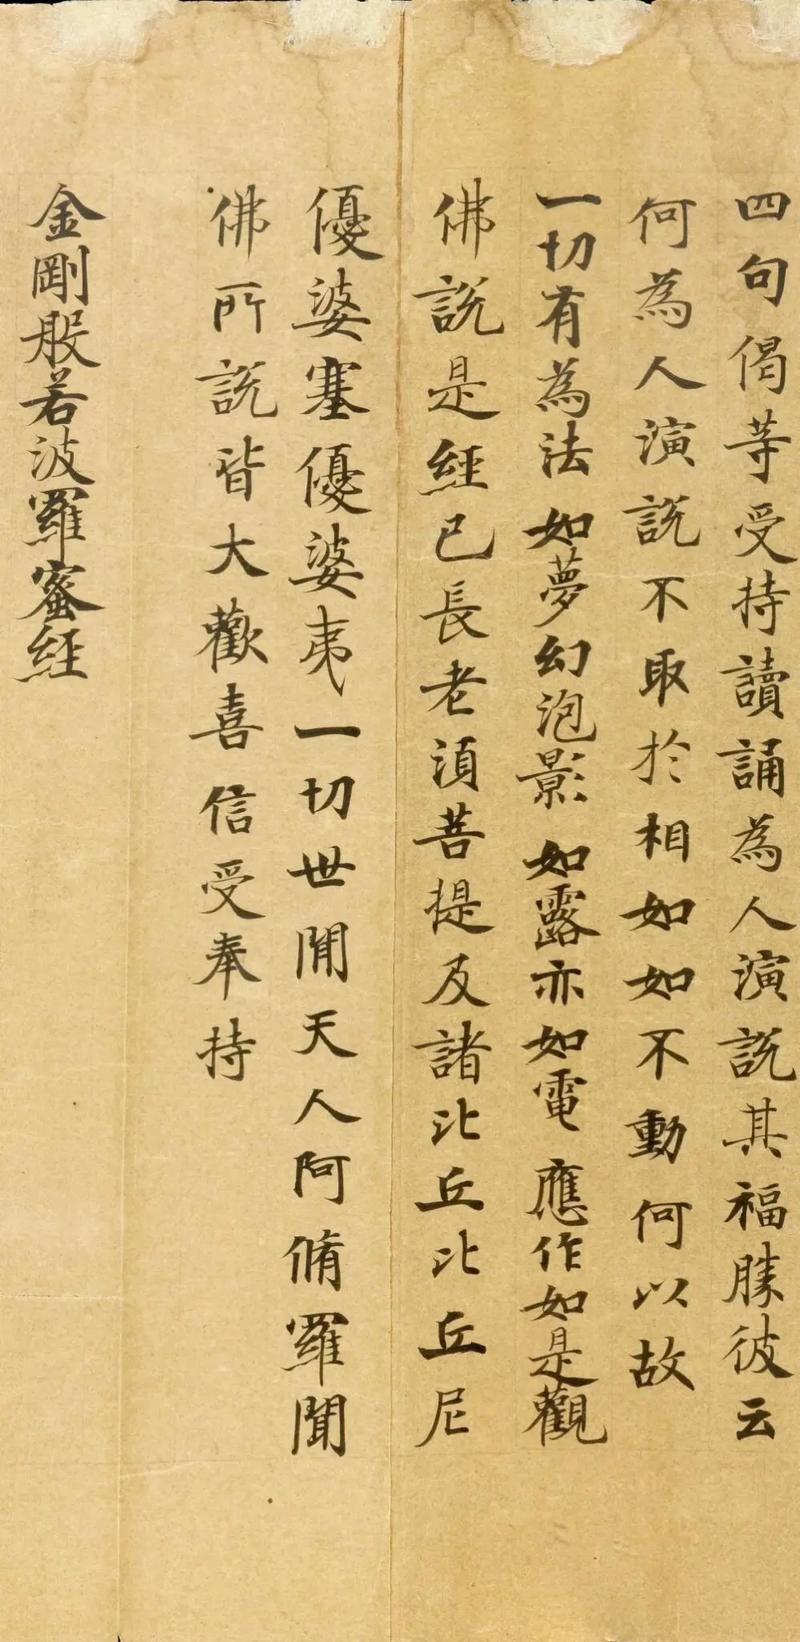 四句偈等受持讀誦為人演說其福勝彼云
何為人演說不取於相如如不動何以故
一切有為法如夢幻泡影如露亦如電應作如是觀
佛說是經已長老須菩提及諸比丘比丘尼
優婆塞優婆夷一切世間天人阿脩羅聞
佛所說皆大歡喜信受奉持
金剛般若波羅蜜經